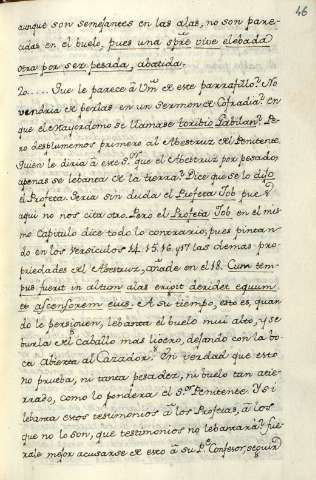 46
aunque son semejantes en las alas, no son pare-
cidas en el buelo, pues una spre vive elebada
otra por ser pesada, abatida.
20..... Que le parece à Um. de este parrafillo? No
vendria de perlas en un Sermon de Cofradia? En
que el Mayordomo se llamase toribio Gabilan? Pe-
ro desplumemos primero al Abestruz del Penitente.
Quien le diria à este Sr. que el Abestruz por pesado,
apenas se lebanta de la tierra? Dice que se lo dijo
el Profeta. Seria sin duda el Profeta Job pues
aqui no nos cita otro. Pero el Profeta Job en el mis
mo Capitulo dice todo lo contrario; pues pintan-
do en los versiculos 14. 15. 16. y 17 las demas pro-
piedades del Abestruz, añade en el 18. Cum tem-
pus fuerit in altum alas erigit deridet equum
et ascensorem eius. A su tiempo, esto es, quan
do le persiguen, lebanta el buelo mui alto, y se
burla del caballo mas ligero, dejando con la bo-
ca abierta al Cazador. En verdad que esto
no prueba, ni tanta pesadez, ni buelo tan ate-
rrado, como lo pondera el Sor. Penitente. Y si
lebanta estos testimonios à los Profetas, à los
que no lo son, que testimonios no lebantara? fue
rale mejor acusarse de esto à su Pe. Confesor, seguir